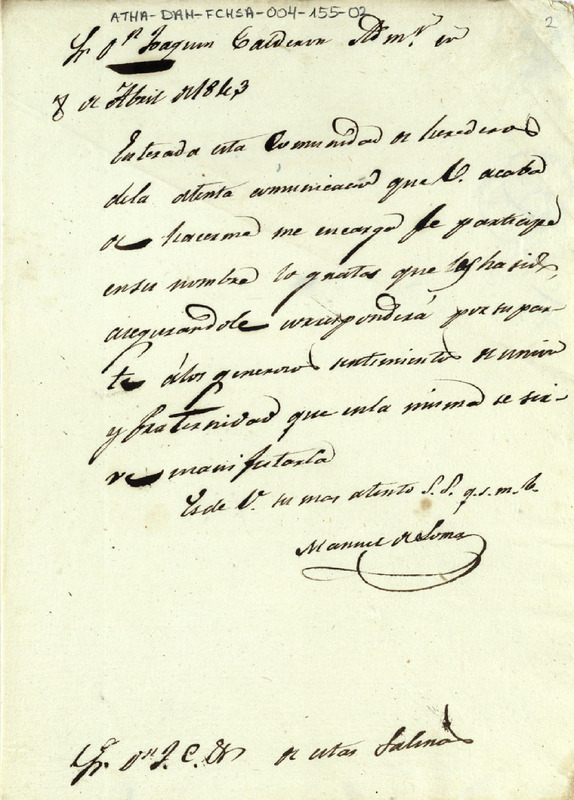 ATHA-DAH-FCHSA-004-155-02
2
Sr. Dn. Joaquin Calderon Admr. en
8 de Abril de 1843
Enterada esta Comunidad de herederos
dela atenta comunicacion que V. acaba
de hacerme me encarga le participe
en su nombre lo gratas que les ha sido,
asegurandole corresponderá por su par-
te álos generosos sentimientos de union
y fraternidad que enla misma se sir-
ve manifestarla
Es de V. su mas atento S. S. q. s. m. b.
Manuel de Loma
Sr. Dn. J. C. de estas Salinas